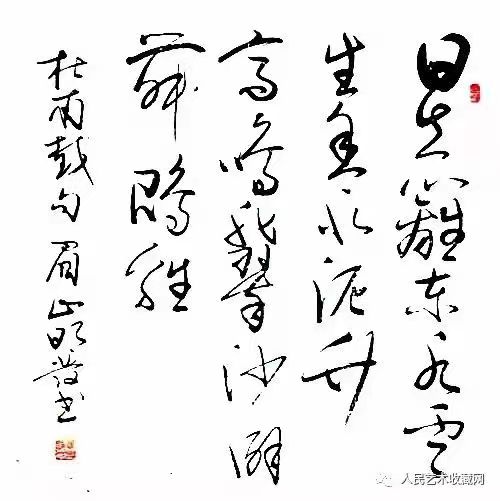 日出籬東水雲
生舍北泥竹
高鳴翡翠沙僻
舞鵾雞
杜甫句 眉山發書
人民艺术收藏网